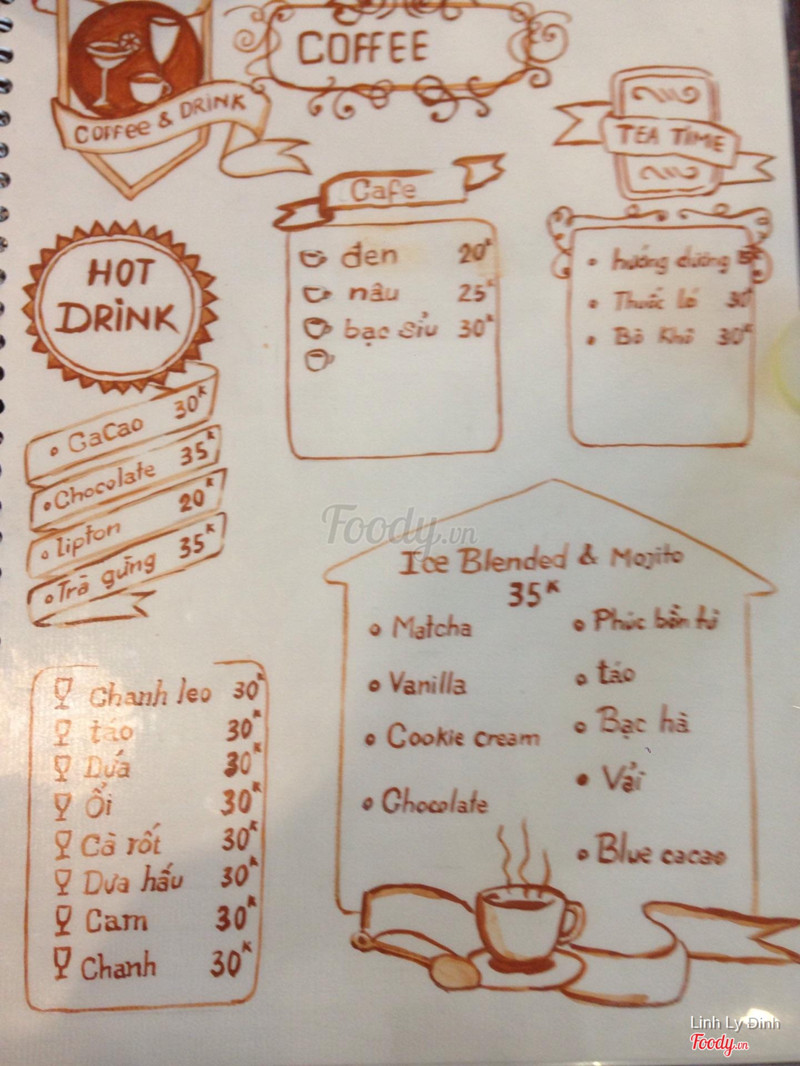 COFFEE
COFFEE & DRINK
TEA TIME
Cafe
đen 20K
nâu 25K
bạc sỉu 30K
hướng dương 15K
Thuốc lá 30K
Bò Khô 30K
HOT
DRINK
CaCao 30K
Chocolate 35K
lipton 20K
Trà gừng 35K
Foody.vn
Ice Blended & Mojito
35K
Matcha
Vanilla
Cookie cream
Chocolate
Phúc bồn tử
táo
Bạc hà
Vải
Blue cacao
Chanh leo 30K
táo 30K
Dứa 30K
Ổi 30K
Cà rốt 30K
Dưa hấu 30K
Cam 30K
Chanh 30K
Linh Ly Đinh
Foody.vn